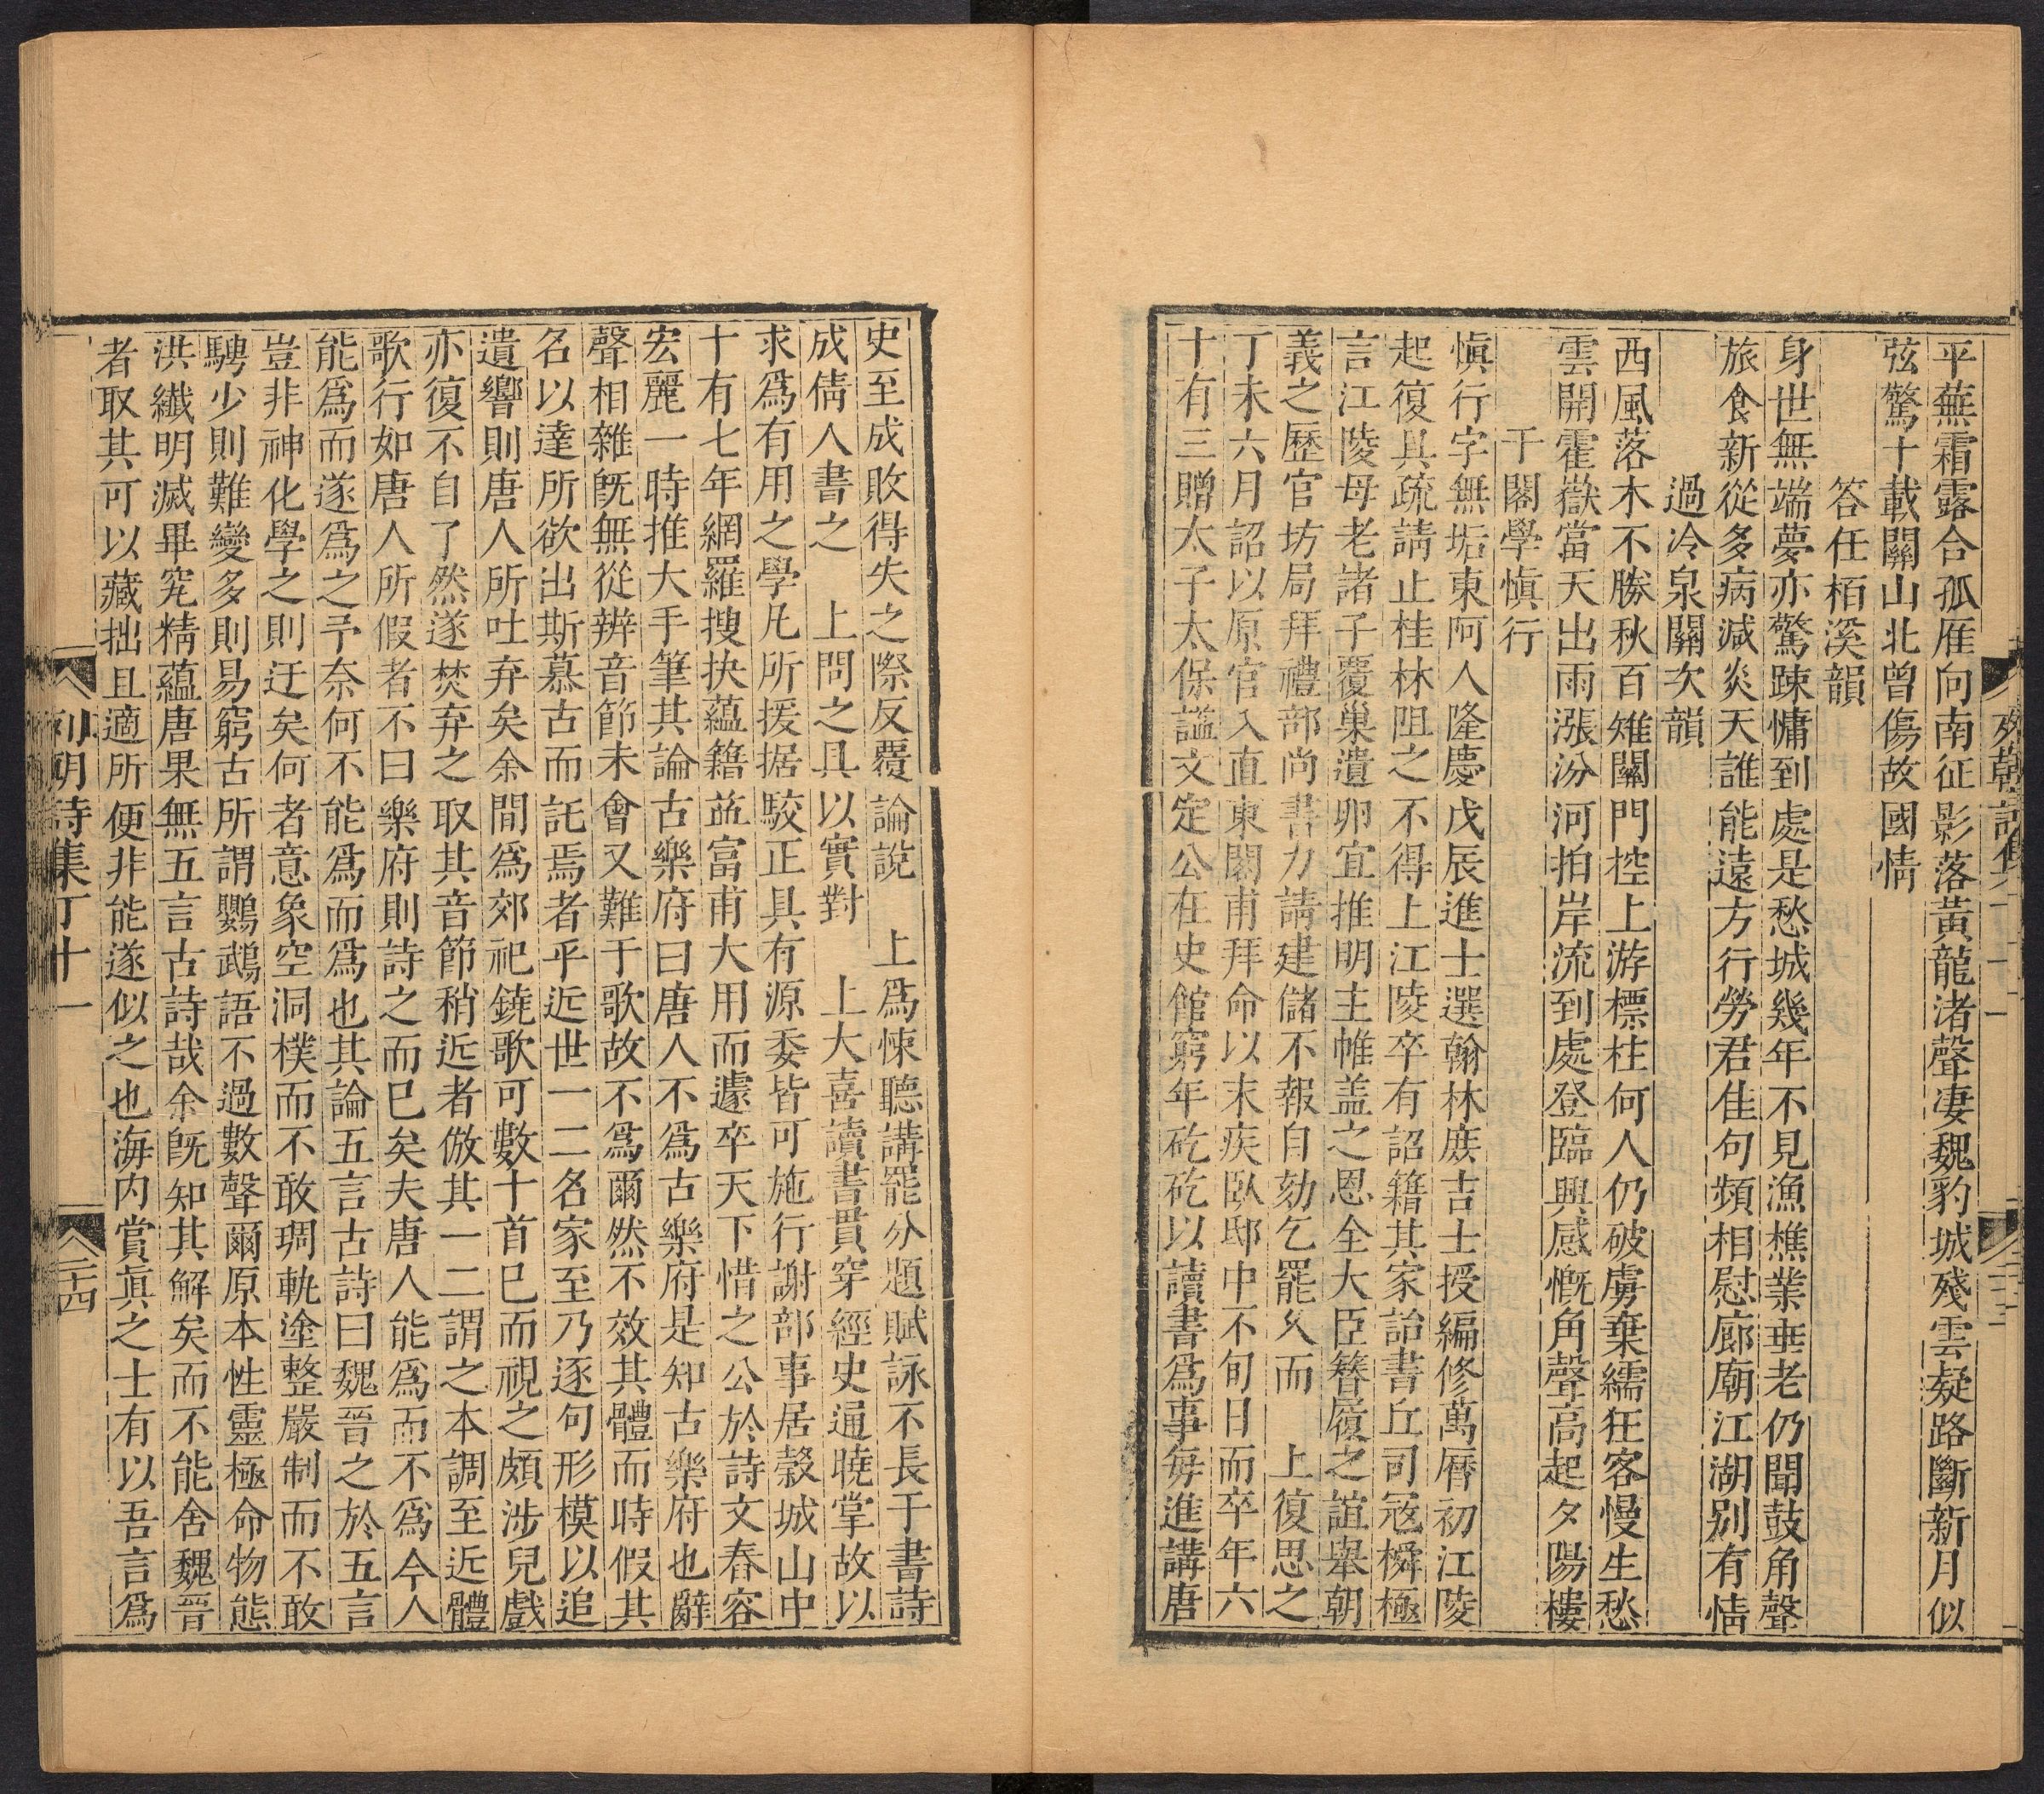 平蕪霜露合孤雁向南征影落黃龍渚聲凄魏豹城殘雲凝路斷新月似
弦驚十載關山北曾傷故國情
答任栢溪韻
身世無端夢亦驚踈慵到處是愁城幾年不見漁樵業垂老仍聞鼓角聲
旅食新從多病減炎天誰能遠方行勞君佳句頻相慰廊廟江湖別有情
過冷泉關次韻
西風落木不勝秋百雉關門控上游標柱何人仍破虜棄繻狂客慢生愁
雲開霍嶽當天出雨漲汾河拍岸流到處登臨興感慨角聲高起夕陽樓
于閣學慎行
慎行字無垢東阿人隆慶戊辰進士選翰林庻吉士授編修萬曆初江陵
起復具疏請止桂林阻之不得上江陵卒有詔籍其家詒書丘司寇橓極
言江陵母老諸子覆巢遺卵宜推明主帷盖之恩全大臣簪履之誼舉朝
義之歷官坊局拜禮部尚書力請建儲不報自劾乞罷久而　上復思之
丁未六月詔以原官入直東閣甫拜命以末疾臥邸中不旬日而卒年六
十有三贈太子太保謚文定公在史館窮年矻矻以讀書爲事每進講唐
史至成敗得失之際反覆論說　上爲悚聽講罷分題賦詠不長于書詩
成倩人書之　上問之具以實對　上大喜讀書貫穿經史通曉掌故以
求爲有用之學凡所援据駮正具有源委皆可施行謝部事居穀城山中
十有七年網羅搜抉蘊籍益富甫大用而遽卒天下惜之公於詩文春容
宏麗一時推大手筆其論古樂府曰唐人不爲古樂府是知古樂府也辭
聲相雜旣無從辨音節未會又難于歌故不爲爾然不效其體而時假其
名以達所欲出斯慕古而託焉者乎近世一二名家至乃逐句形模以追
遺響則唐人所吐弃矣余間爲郊祀鐃歌可數十首已而視之頗涉兒戲
亦復不自了然遂焚弃之取其音節稍近者倣其一二謂之本調至近體
歌行如唐人所假者不曰樂府則詩之而已矣夫唐人能爲而不爲今人
能爲而遂爲之予奈何不能爲而爲也其論五言古詩曰魏晉之於五言
豈非神化學之則迂矣何者意象空洞樸而不敢琱軌塗整嚴制而不敢
騁少則難變多則易窮古所謂鸚鵡語不過數聲爾原本性靈極命物態
洪纖明滅畢究精蘊唐果無五言古詩哉余旣知其解矣而不能舍魏晉
者取其可以藏拙且適所便非能遂似之也海內賞真之士有以吾言爲
列朝詩集丁十一
二十四